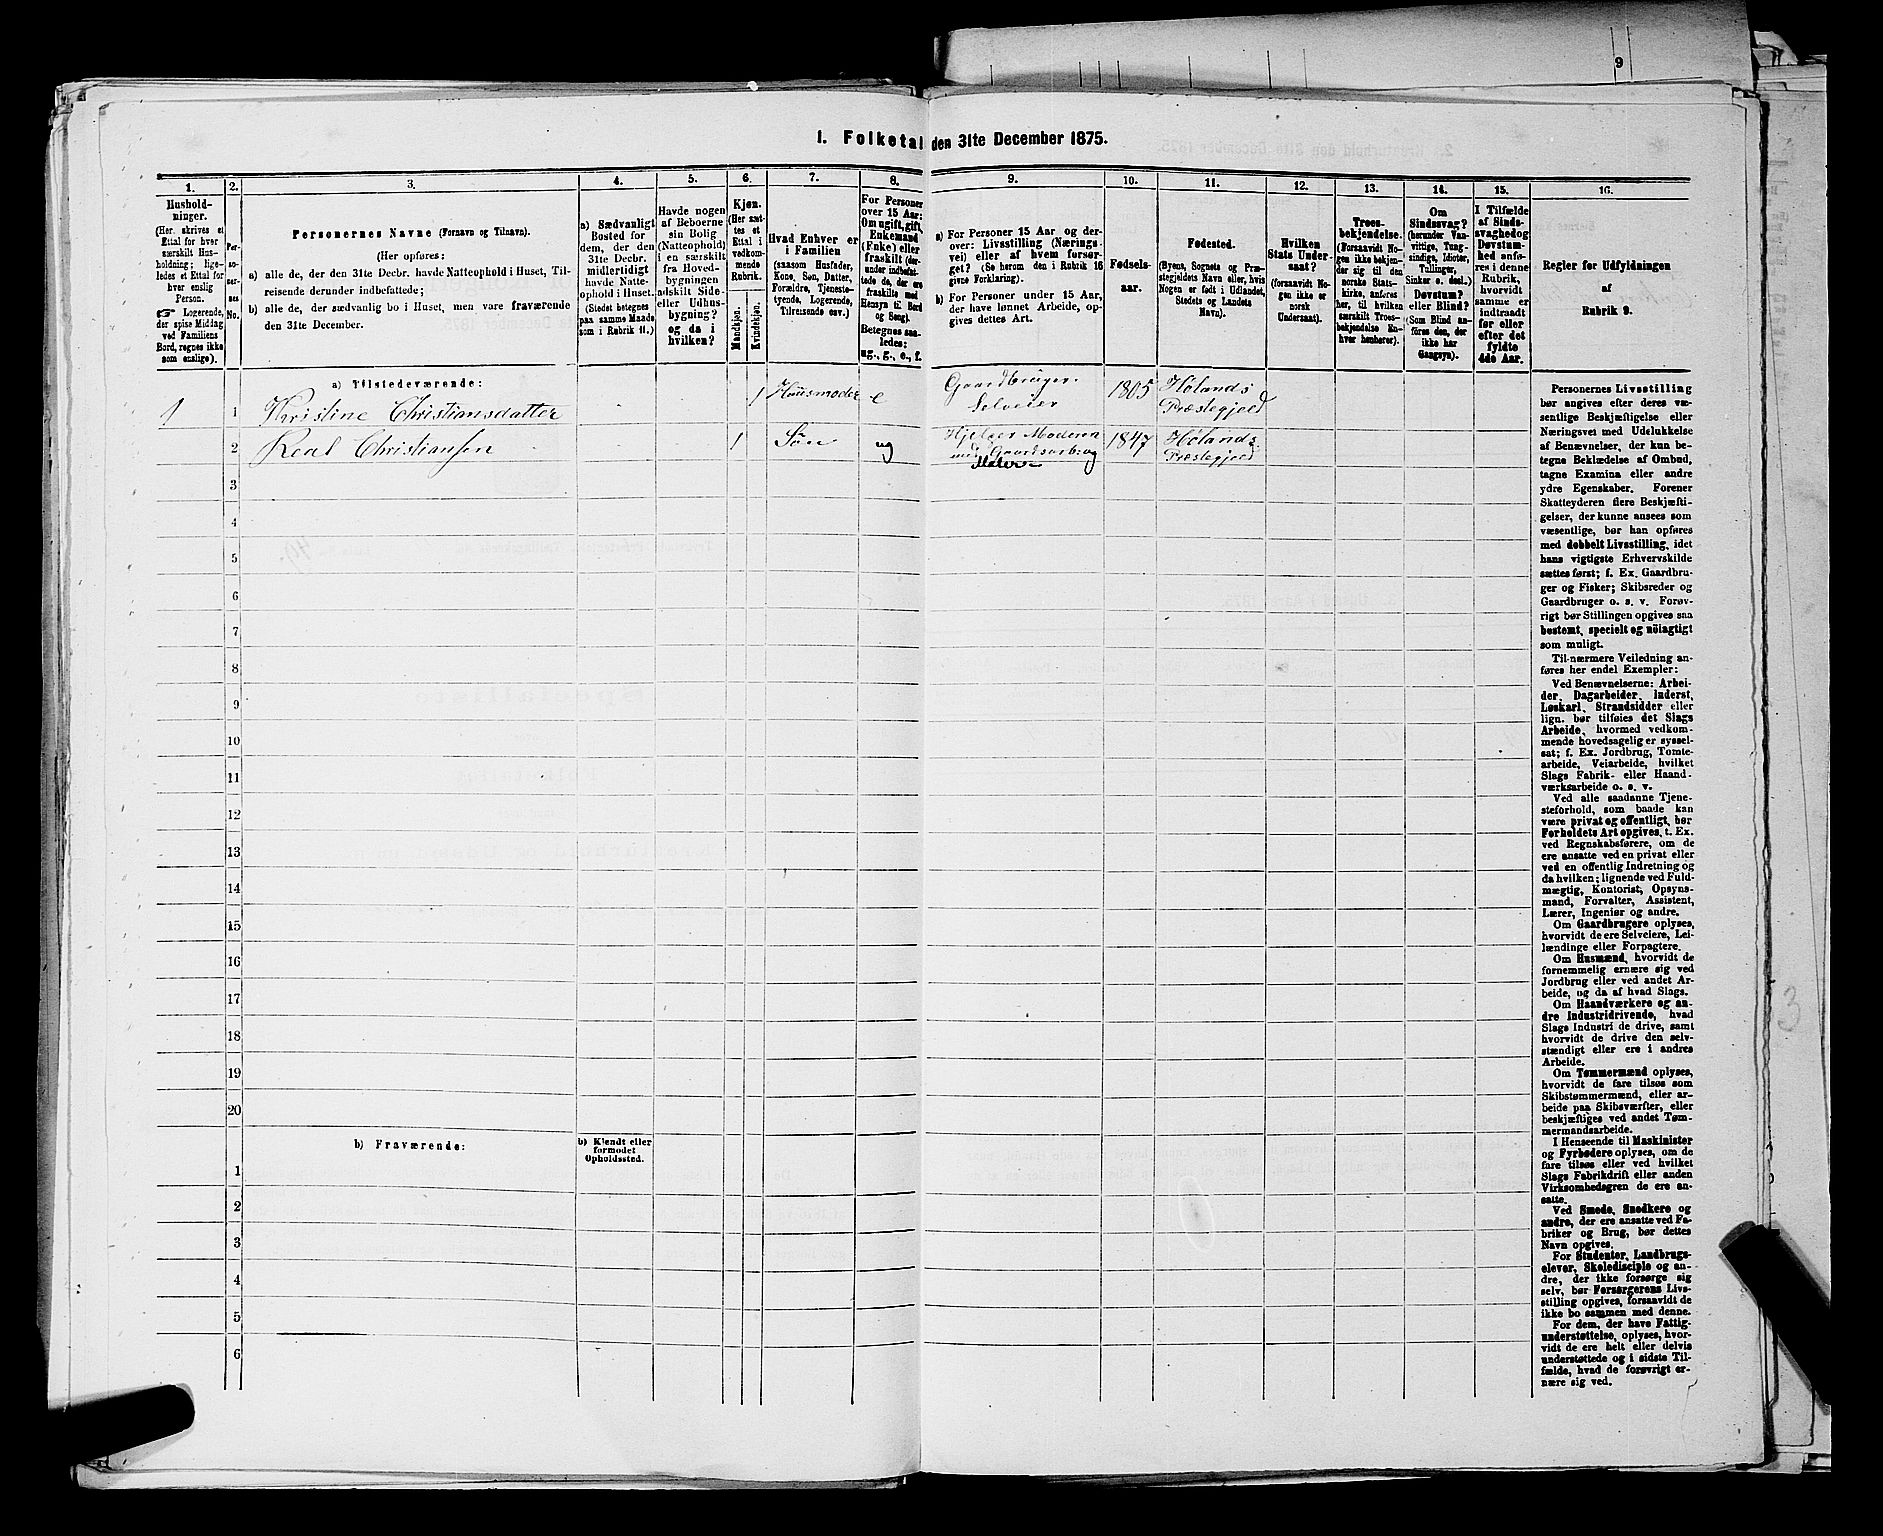 9
1. Folketal den 31te December 1875.
1.
2.
3.
4.
5.
6.
7.
8.
9.
10.
11.
12.
13.
14.
15.
16.
Hushold-
ninger.
(Her skrives et
Ettal for hver
særskilt Hus-
holdning; lige-
ledes et Ettal for
hver enslig
Person.
Logerende,
der spise Middag
ved Familiens
Bord, regnes ikke
som enslige).
Per-
so-
ner-
nes
No.
Personernes Navne (Fornavn og Tilnavn).
(Her opføres:
a) alle de, der den 31te Decbr. havde Natteophold i Huset, Til-
reisende derunder indbefattede;
b) alle de, der sædvanlig bo i Huset, men vare fraværende
den 31te December.
a) Sædvanligt
Bosted for
dem, der den
31te Decbr.
midlertidigt
havde Natte-
ophold i Huset.
(Stedet betegnes
paa samme Maade
som i Rubrik 11.)
Havde nogen
af Beboerne
sin Bolig
(Natteophold)
i en særskilt
fra Hoved-
bygningen
adskilt Side-
eller Udhus-
bygning?
og da i
hvilken?
Kjøn.
(Her sæt-
tes et
Ettal i
vedkom-
mende
Rubrik.
Mandkjøn.
Kvindekjøn.
Hvad Enhver er
i Familien
(saasom Husfader,
Kone, Søn, Datter,
Forældre, Tjeneste-
tyende, Logerende,
Tilreisende osv.)
For Personer
over 15 Aar:
Om ugift, gift,
Enkemand
(Enke) eller
fraskilt (der-
under indbefat-
tede de, der ere
fraskilte med
Hensyn til Bord
og Seng).
Betegnes saa-
ledes:
ug., g., e., f.
a) For Personer 15 Aar og der-
over: Livsstilling (Nærings-
vei) eller af hvem forsør-
get? (Se herom den i Rubrik 16
givne Forklaring).
b) For Personer under 15 Aar,
der have lønnet Arbeide, op-
gives dettes Art.
Fødsels-
aar.
Fødested.
(Byens, Sognets og Præ-
stegjeldets Navn eller, hvis
Nogen er født i Udlandet,
Stedets og Landets
Navn).
Hvilken
Stats Under-
saat?
(forsaavidt No-
gen ikke er
norsk
Undersaat).
Troes-
bekjendelse.
(Forsaavidt No-
gen ikke bekjen-
der sig til den
norske Stats-
kirke, anføres
her, til hvilken
særskilt Troes-
bekjendelse En-
hver henhører).
Om
Sindssvag?
(herunder Van-
vittige, Tung-
sindige, Idioter,
Tullinger,
Sinker o. desl.)
Døvstum?
eller Blind?
(Som Blind an-
føres den, der
ikke har
Gangsyn).
I Tilfælde
af Sinds-
svaghed og
Døvstum-
hed anfø-
res i denne
Rubrik,
hvorvidt
samme er
indtraadt
før eller
efter det
fyldte
4de Aar.
Regler for Udfyldningen
af
Rubrik 9.
a) Tilstedeværende:
1 1 Khristine Christiansdatter 1 Huusmoder e Gaardbruger Selveier 1805 Hølands Præstegjeld
2 Christiansen 1 Søn ug Hjelper Moderen 1847 Hølands Præstegjeld
3
4
5
6
7
8
9
10
11
12
13
14
15
16
17
18
19
20
b) Fraværende:
b) Kjendt eller
formodet
Opholdssted.
1
2
3
4
5
6
Personernes Livsstilling
bør angives efter deres væ-
sentlige Beskjæftigelse eller
Næringsvei med Udelukkelse
af Benævnelser, der kun be-
tegne Beklædelse af Ombud,
tagne Examina eller andre
ydre Egenskaber. Forener
Skatteyderen flere Beskjæfti-
gelser, der kunne ansees som
væsentlige, bør han opføres
med dobbelt Livsstilling, idet
hans vigtigste Erhvervskilde
sættes først; f. Ex. Gaardbru-
ger og Fisker; Skibsreder og
Gaardbruger o. s. v. Forøv-
rigt bør Stillingen opgives saa
bestemt, specielt og nöiagtigt
som muligt.
Til nærmere Veiledning an-
føres her endel Exempler:
Ved Benævnelserne: Arbei-
der, Dagarbeider, Inderst,
Løskarl, Strandsidder eller
lign. bør tilføies det Slags
Arbeide, hvormed vedkom-
mende hovedsagelig er syssel-
sat; f. Ex. Jordbrug, Tomte-
arbeide, Veiarbeide, hvilket
Slags Fabrik- eller Haand-
værksarbeide o. s. v.
Ved alle saadanne Tjene-
steforhold, som baade kan
være privat og offentligt, bør
Forholdets Art opgives, t. Ex.
ved Regnskabsførere, om de
ere ansatte ved en privat eller
ved en offentlig Indretning og
da hvilken; lignende ved Fuld-
mægtig, Kontorist, Opsyns-
mand, Forvalter, Assistent,
Lærer, Ingeniør og andre.
Om Gaardbrugere oplyses,
hvorvidt de ere Selveiere, Lei-
lændinge eller Forpagtere.
Om Husmænd, hvorvidt de
fornemmelig ernære sig ved
Jordbrug eller ved andet Ar-
beide, og da af hvad Slags.
Om Haandværkere og an-
dre Industridrivende, hvad
Slags Industri de drive, samt
hvorvidt de drive den selv-
stændigt eller ere i andres
Arbeide.
Om Tømmermænd oplyses,
hvorvidt de fare tilsøs som
Skibstømmermænd, eller ar-
beide paa Skibsværfter, eller
beskjæftiges ved andet Tøm-
mermandsarbeide.
I Henseende til Maskinister
og Fyrbødere oplyses, om de
fare tilsøs eller ved hvilket
Slags Fabrikdrift eller anden
Virksomhedsgren de ere an-
satte.
Ved Smede, Snedkere og
andre, der ere ansatte ved Fa-
briker og Brug, bør dettes
Navn opgives.
For Studenter, Landbrugs-
elever, Skoledisciple og an-
dre, der ikke forsørge sig
selv, bør Forsørgerens Livs-
stilling opgives, forsaavidt de
ikke bo sammen med denne.
For dem, der have Fattig-
understøttelse, oplyses, hvor-
vidt de ere helt eller delvis
understøttede og i sidste Til-
fælde, hvad de forøvrigt er-
nære sig ved.
3